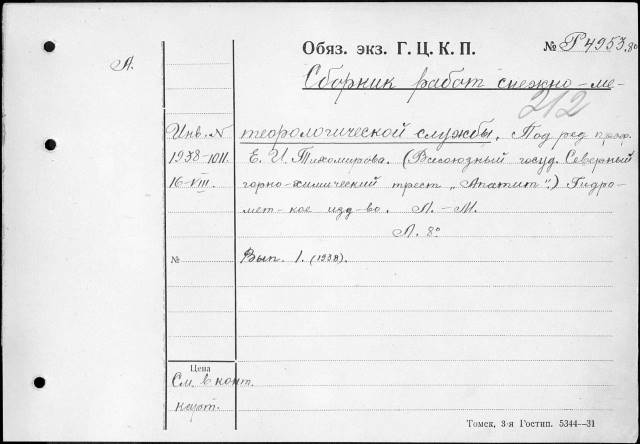 Обяз. экз. Г. Ц. К. П. № Р4953.80
А.
Сборник работ снежно-ме-
212
Инв. N теорологической службы. Под ред проф.
1938-1011. Е. И. Тихомирова. (Всесоюзный госуд. Северный
16-VIII. горно-химический трест „Апатит“.) Гидро-
мет-кое изд-во. Л.-М.
Л. 8°
№ Вып. 1. (1938).
Цена
См. в конт.
карт.
Томск, 3-я Гостип. 5344—31